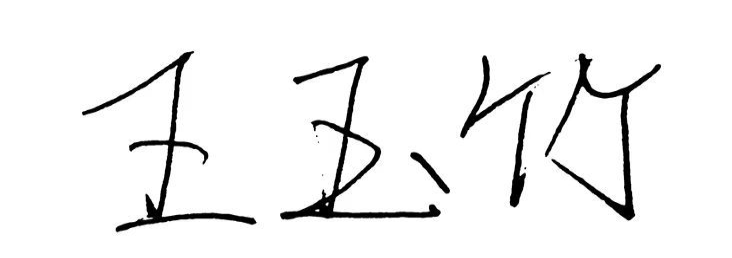 王玉竹